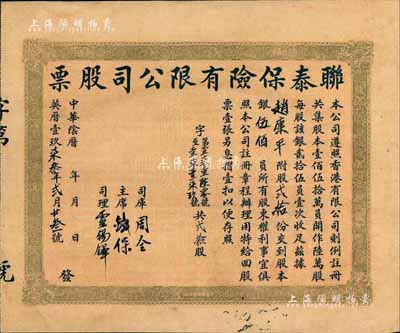 聯泰保險有限公司股票
本公司遵照香港有限公司則例註冊
共集股本壹佰伍拾萬員開作陸萬股
每股該銀貳拾伍員壹次收足茲據
趙廉平附股弍拾份交到股本
銀伍佰員所有股東權利事宜俱
照本公司註冊章程辦理用特給回股
票壹張另息摺壹扣以便存照
共弍拾股
司庫 周全
主席 保
司理
中華陰曆 年 月 日
英曆壹玖 年弍月廿 號 發
字第
號
上海陽明拍卖
上海陽明拍卖